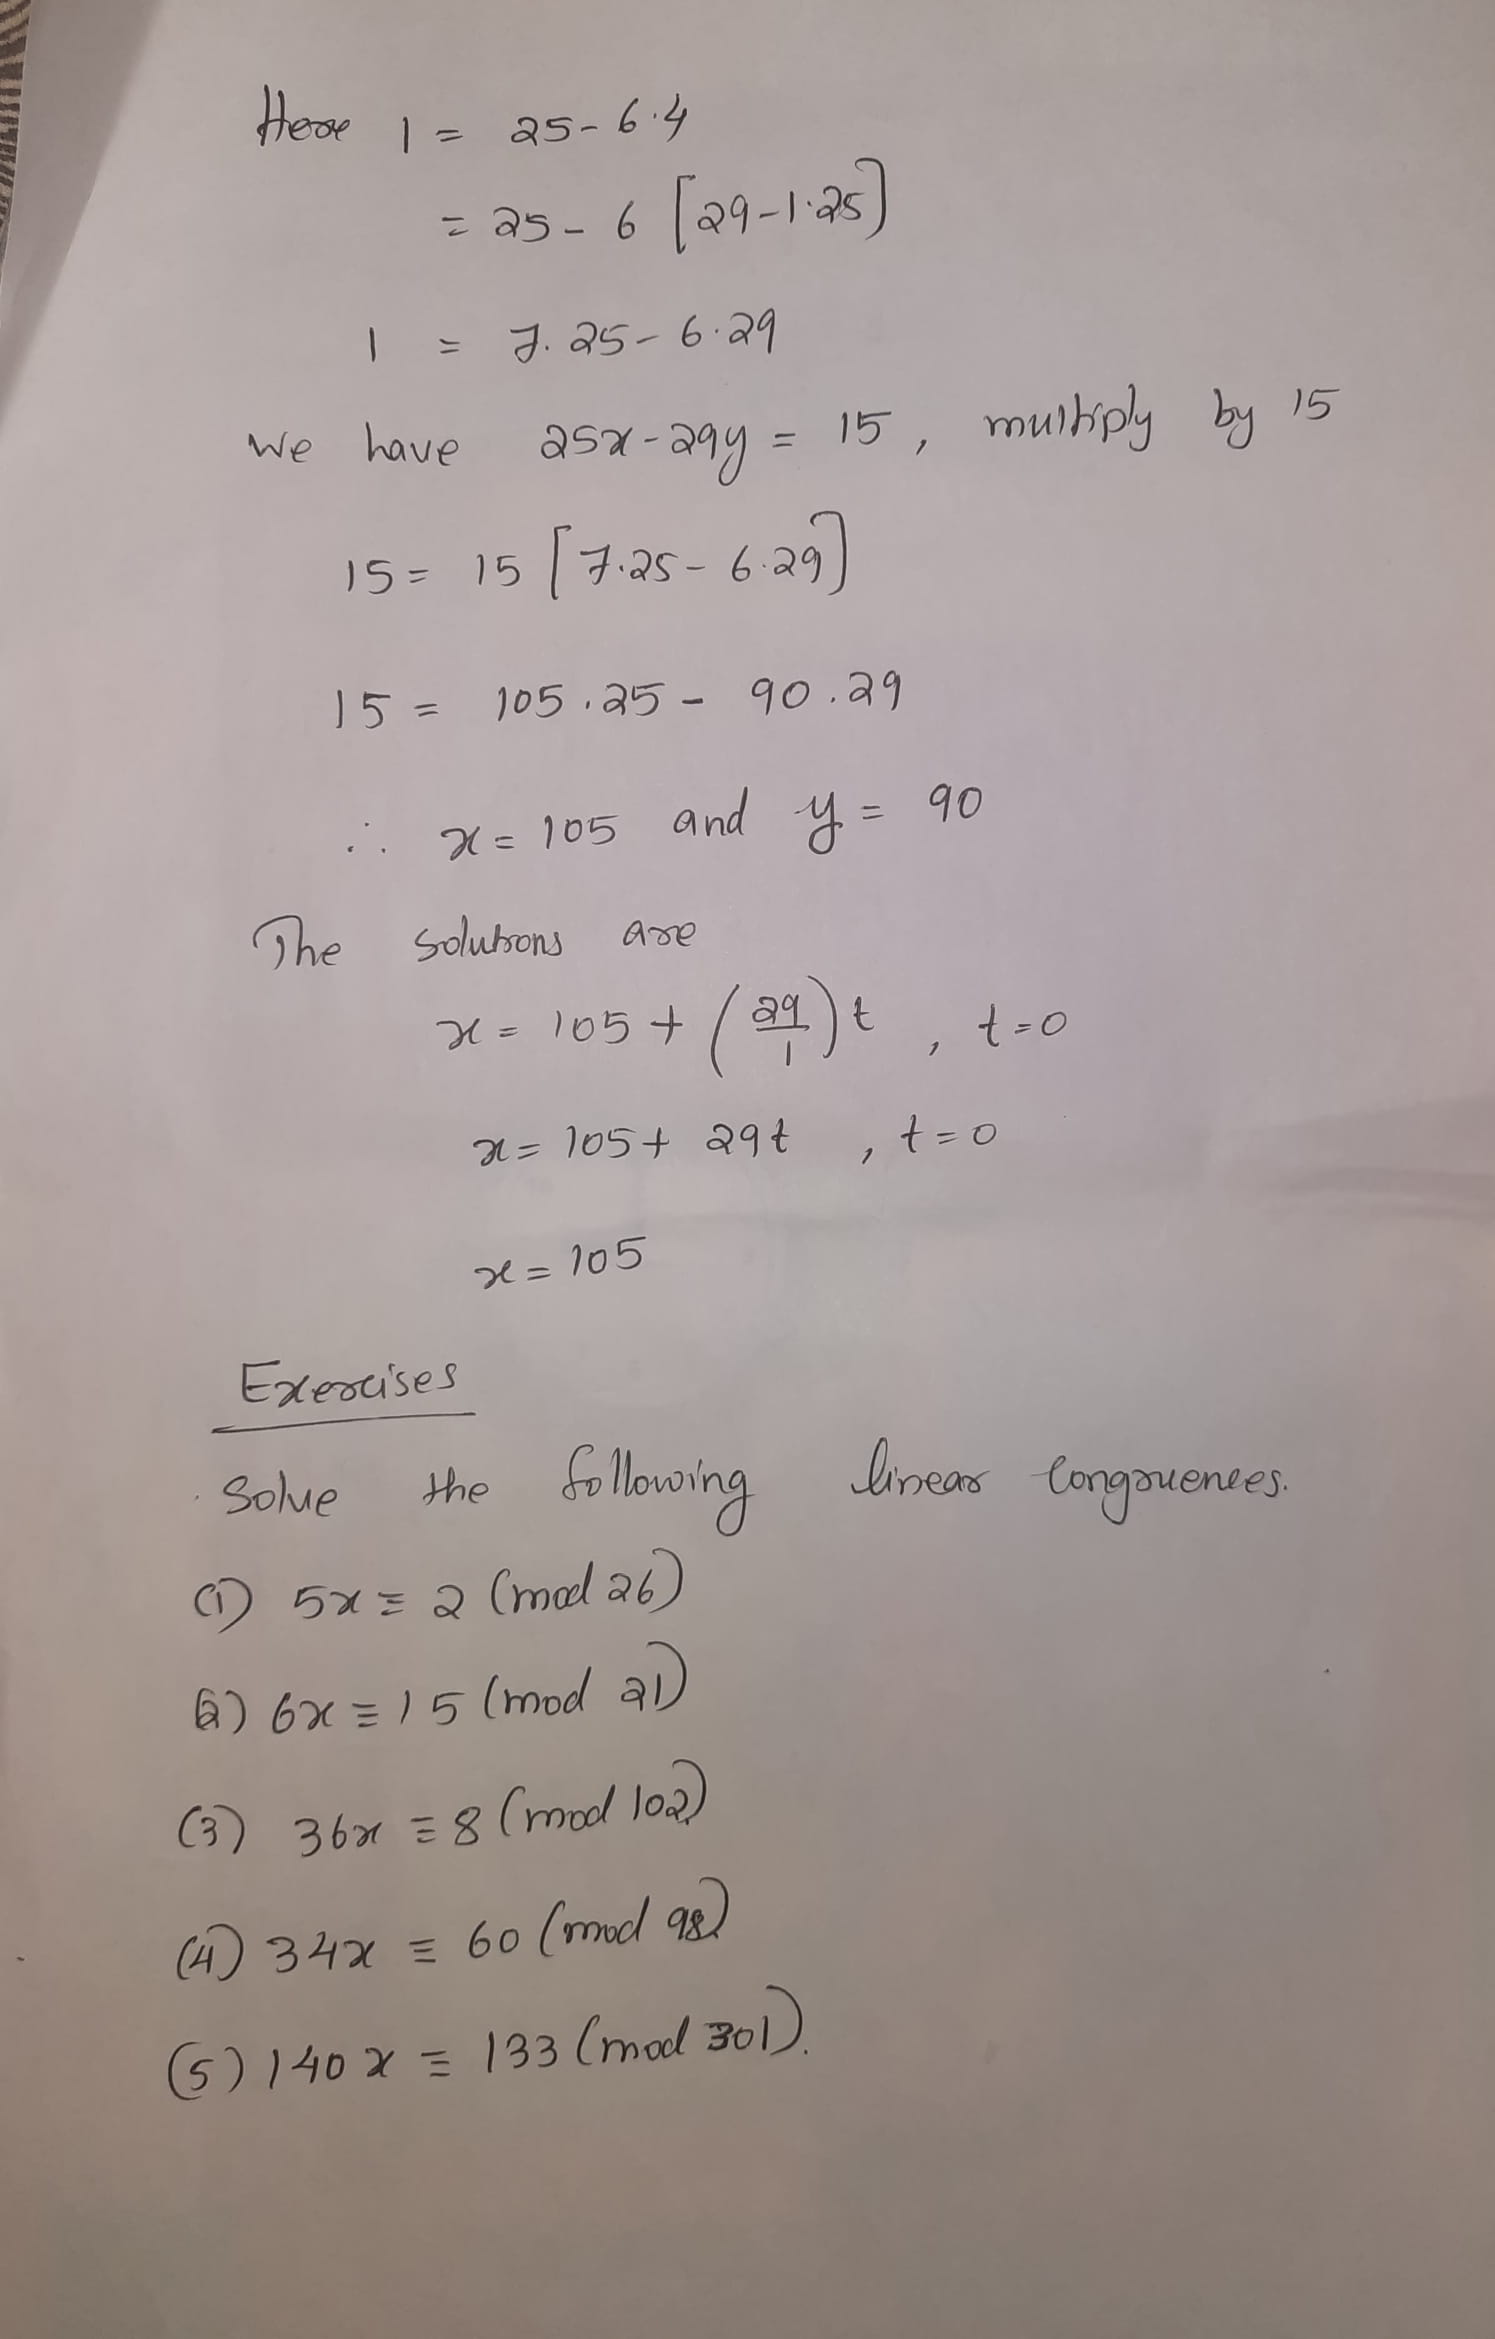 Here 1 = 25 - 6.4
= 25 - 6 [29-1.25]
1 = 7.25 - 6.29
we have 25x - 29y = 15, multiply by 15
15 = 15 [7.25 - 6.29]
15 = 105.25 - 90.29
∴ x = 105 and y = 90
The solutions are
x = 105 + (29/1)t, t=0
x = 105 + 29t, t=0
x = 105
Exercises
Solve the following linear congruences.
(1) 5x ≡ 2 (mod 26)
(2) 6x ≡ 15 (mod 21)
(3) 36x ≡ 8 (mod 102)
(4) 34x ≡ 60 (mod 98)
(5) 140x ≡ 133 (mod 301).